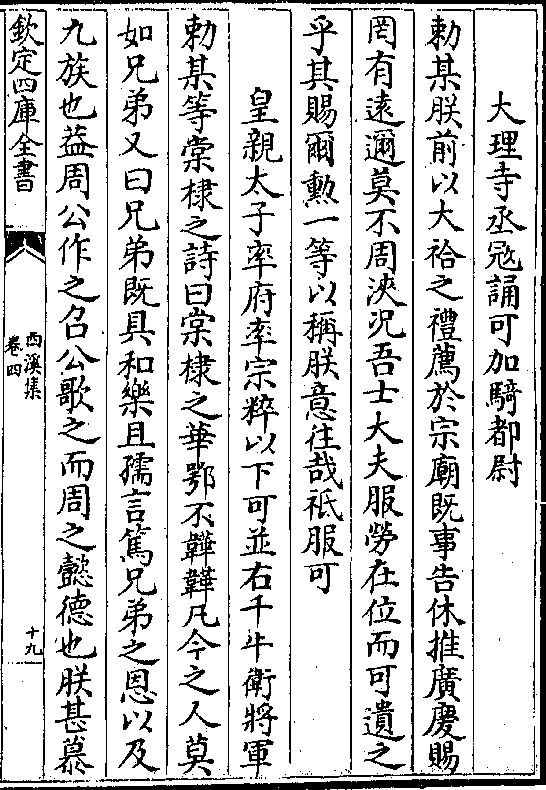 大理寺丞冦誦可加騎都尉
勅某朕前以大祫之禮薦於宗廟既事告休推廣慶賜
罔有遠邇莫不周浹况吾士大夫服勞在位而可遺之
乎其賜爾勲一等以稱朕意往哉祗服可
皇親太子率府率宗粹以下可並右千牛衛將軍
勅某等棠棣之詩曰棠棣之華鄂不韡韡凡今之人莫
如兄弟又曰兄弟既具和樂且孺言篤兄弟之恩以及
九族也葢周公作之召公歌之而周之懿德也朕甚慕
欽定四庫全書
西溪集
卷四
十九